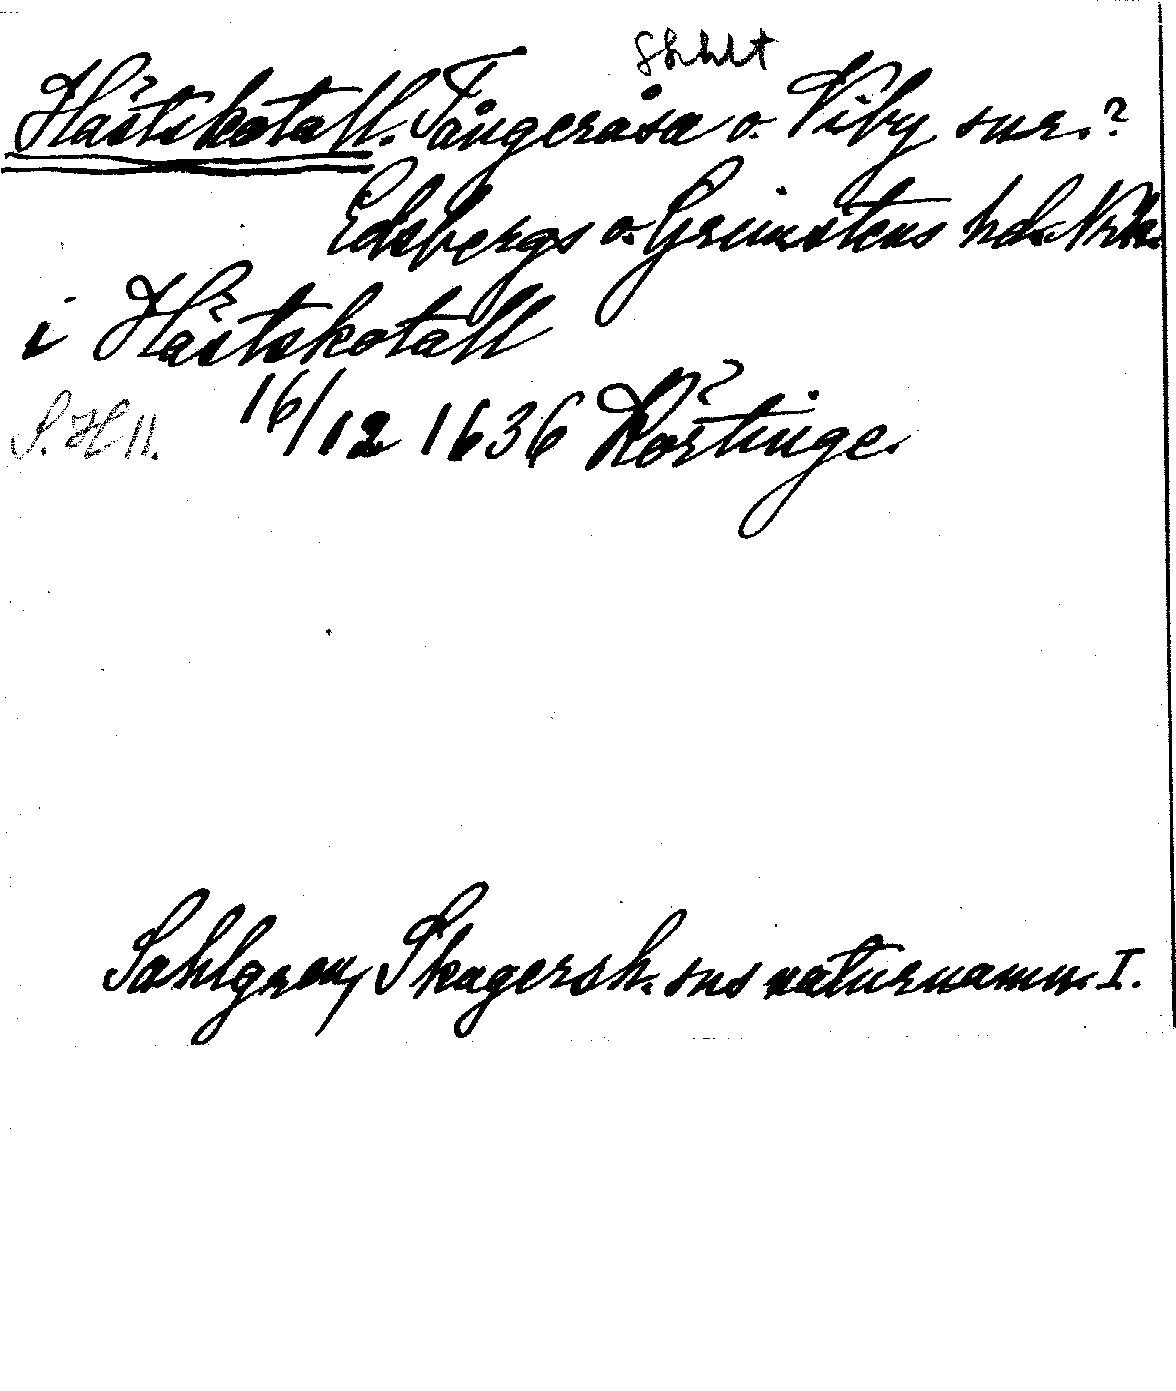 Hästskotall. Tångeråsa o. Viby snr.?
Edsbergs o. Grimstens hd. Nrk.
i Hästskotall
S. H 11. 16/12 1636 Körtinge.
Sahlgren, Skagersh. sns naturnamn. I.